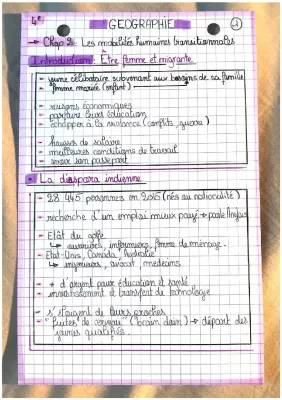 4e
GEOGRAPHIE
1
→ Chap 2: Les mobilités humaines transnationales
Introduction: Être femme et migrante
- jeune célibataire subvenant aux besoins de sa famille
- femme mariée (enfant)
- raisons économiques
- éducation
- échapper à la violence (conflits, guerre)
- hausse de salaire
- meilleures conditions de travail
- avoir son passeport
La diaspora indienne
- 28 445 personnes en 2015 (nés ou nationalité)
- recherche d'un emploi mieux payé →
- Etat du golfe
↳ ouvriers, infirmiers, femme de ménage.
- Etat-Unis, Canada, Australie
↳ ingénieurs, avocat, médecins
- + d'argent pour éducation et santé
- investissement et transfert de technologie
- s'éloignent de leurs proches
- "fuites de cerveau" (brain drain) → départ des
jeunes qualifiés.